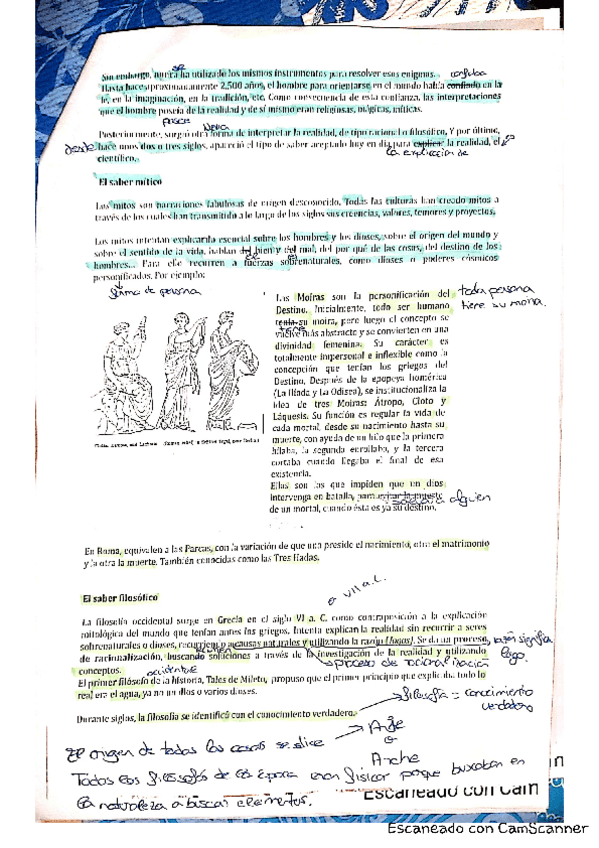 Sin embargo, nunca ha utilizado los mismos instrumentos para resolver esos enigmas. confiaba
Hasta hace aproximadamente 2.500 años, el hombre para orientarse en el mundo había confiado en la
fe, en la imaginación, en la tradición, etc. Como consecuencia de esta confianza, las interpretaciones
que el hombre poseía de la realidad y de sí mismo eran religiosas, mágicas, míticas.
nueva
Posteriormente, surgió otra forma de interpretar la realidad, de tipo racional o filosófico. Y por último,
desde hace unos dos o tres siglos, apareció el tipo de saber aceptado hoy en día para explicar la realidad, el
científico. la explicación de
El saber mítico
Los mitos son narraciones fabulosas de origen desconocido. Todas las culturas han creado mitos a
través de los cuales han transmitido a lo largo de los siglos sus creencias, valores, temores y proyectos.
Los mitos intentan explicar lo esencial sobre los hombres y los dioses, sobre el origen del mundo y
sobre el sentido de la vida, hablan del bien y del mal, del por qué de las cosas, del destino de los
hombres... Para ello recurren a fuerzas sobrenaturales, como dioses o poderes cósmicos
personificados. Por ejemplo:
forma de persona
Las Moiras son la personificación del toda persona
Destino. Inicialmente, todo ser humano tiene su moira.
tenía su moira, pero luego el concepto se
vuelve más abstracto y se convierten en una
divinidad femenina. Su carácter es
totalmente impersonal e inflexible como la
concepción que tenían los griegos del
Destino. Después de la epopeya homérica
(La Ilíada y La Odisea), se institucionaliza la
idea de tres Moiras: Átropo, Cloto y
Láquesis. Su función es regular la vida de
cada mortal, desde su nacimiento hasta su
muerte, con ayuda de un hilo que la primera
hilaba, la segunda enrollaba, y la tercera
cortaba cuando llegaba el final de esa
existencia.
Ellas son las que impiden que un dios
intervenga en batalla, para evitar la muerte alguien
de un mortal, cuando ésta es ya su destino.
En Roma, equivalen a las Parcas, con la variación de que una preside el nacimiento, otra el matrimonto
y la otra la muerte. También conocidas como las Tres Hadas.
o VII a.C.
El saber filosófico
La filosofía occidental surge en Grecia en el siglo VI a. C. como contraposición a la explicación
mitológica del mundo que tenían antes los griegos. Intenta explicar la realidad sin recurrir a seres
sobrenaturales o dioses, recurriendo a causas naturales y utilizando la razón (logos). Se da un proceso
de racionalización, buscando soluciones a través de la investigación de la realidad y utilizando
conceptos. proceso de racionalización
occidente
El primer filósofo de la historia, Tales de Mileto, propuso que el primer principio que explicaba todo lo
real era el agua, ya no un dios o varios dioses.
filosofía = conocimiento verdadero
Durante siglos, la filosofía se identificó con el conocimiento verdadero.
El origen de todas las cosas se dice Arje
o
Arche
Todos los filósofos de la época eran físicos porque buscaban en
la naturaleza a buscar elementos.
Escaneado con Cam
Escaneado con CamScanner